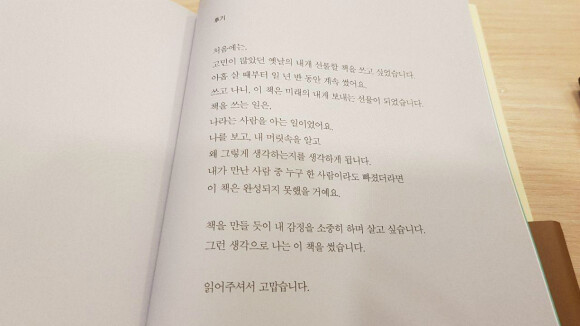 후기
처음에는,
고민이 많았던 옛날의 내게 선물할 책을 쓰고 싶었습니다.
아홉 살 때부터 일 년 반 동안 계속 썼어요.
쓰고 나니, 이 책은 미래의 내게 보내는 선물이 되었습니다.
책을 쓰는 일은,
나라는 사람을 아는 일이었어요.
나를 보고, 내 머릿속을 알고
왜 그렇게 생각하는지를 생각하게 됩니다.
내가 만난 사람 중 누구 한 사람이라도 빠졌더라면
이 책은 완성되지 못했을 거예요.
책을 만들 듯이 내 감정을 소중히 하며 살고 싶습니다.
그런 생각으로 나는 이 책을 썼습니다.
읽어주셔서 고맙습니다.